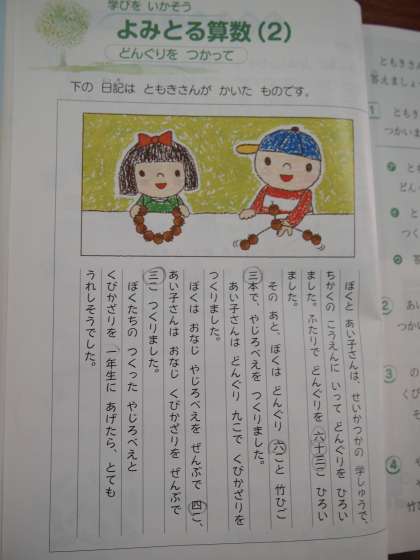 学びを いかそう
よみとる算数(2)
どんぐりを つかって
下の 日記は ともきさんが かいた ものです。
ぼくと あい子さんは、せいかつかの 学しゅうで、
ちかくの こうえんに いって どんぐりを ひろい
ました。ふたりで どんぐりを 六十三こ ひろい
ました。
その あと、ぼくは どんぐり 六こと 竹ひご
三本で、やじろべえを つくりました。
あい子さんは どんぐり 九こで くびかざりを
つくりました。
ぼくは おなじ やじろべえを ぜんぶで 四こ、
あい子さんは おなじ くびかざりを ぜんぶで
三こ つくりました。
ぼくたちの つくった やじろべえと
くびかざりを 一年生に あげたら、とても
うれしそうでした。
ともきさん
答えましょ
1 ともき
つかいま
2 あい
つかい
3 の
くび
そ
4 や
や
何